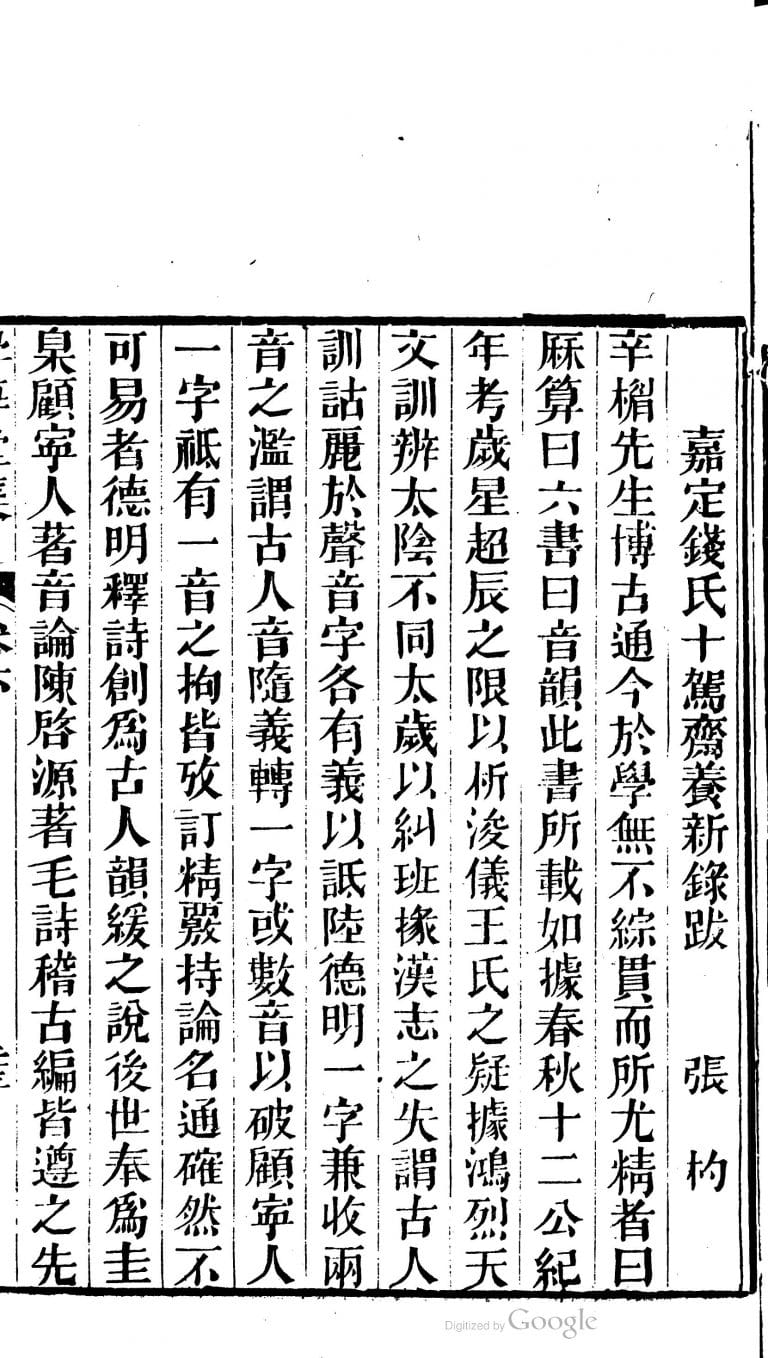 嘉定錢氏十駕齋養新錄跋 張杓
辛楣先生博古通今於學無不綜貫而所尤精者曰
厤算曰六書曰音韻此書所載如據春秋十二公紀
年考歲星超辰之限以析浚儀王氏之疑據鴻烈天
文訓辨太陰不同太歲以糾班掾漢志之失謂古人
訓詁麗於聲音字各有義以詆陸德明一字兼收兩
音之濫謂古人音隨義轉一字或數音以破顧寧人
一字祗有一音之拘皆攷訂精覈持論名通確然不
可易者德明釋詩創爲古人韻緩之說後世奉爲圭
臬顧寧人著音論陳啓源著毛詩稽古編皆遵之先
Digitized by Google